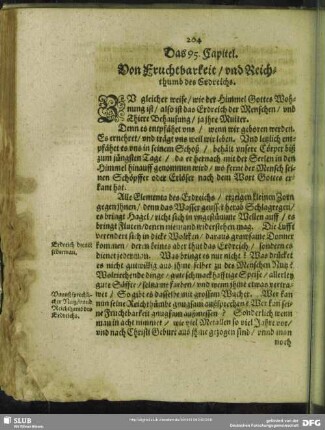 204
Das 95. Capitel.
Von Fruchtbarkeit / vnd Reich-
thumb des Erdreichs.
ZV gleicher weise / wie der Himmel Gottes Woh-
nung ist / also ist das Erdreich der Menschen / vnd
Thiere Behausung / ja ihre Mutter.
Denn es entpfähet vns / wenn wir geboren werden.
Es ernehret / vnd trägt vns weil wir leben. Vnd letzlich ent-
pfähet es vns in seinem Schoß / behält vnsere Cörper biß
zum jüngsten Tage / da er hernach mit der Seelen in den
Himmel hinauff genommen wird / wo ferne der Mensch sei-
nen Schöpffer oder Erlöser nach dem Wort Gottes er-
kant hat.
Alle Elementa des Erdreichs / erzeigen
gegen ihnen / denn das Wasser geust herab Schlagregen /
es bringt Hagel / zicht sich in vngestümme Wellen auff / es
bringt Fluten / denen niemand widerstehen mag. Die Lufft
verendert sich in dicke Wolcken / daraus grawsame Donner
kommen / deren keines aber thut das Erdreich / sondern es
dienet jederman. Was bringt es mit nicht? Was
es nicht gutwillig aus ihme selber zu des Menschen Nutz?
Wolriechende dinge / gar schmackhafftige Speise / allerley
gute Säffte / seltzame farben / vnd wenn ihme etwas vertra-
wet / So gibt es dasselbe mit grossem Wucher. Wer kan
nun seine Reichthümb gnugsam aussprechen? Wer kan sei-
ne Fruchtbarkeit gnugsam außmessen? Sonderlich wenn
man in acht nimmet / wie viel Metallen so viel Jahr vor /
vnd nach Christi Geburt aus ihme gezogen sind / vnnd man
noch
Erdreich dienet
jederman.
Vnaußsprech-
licher Nutz / vnd
Reichthumb des
Erdreichs.
SLUB
Wir führen Wissen.
gefördert von der
Deutschen Forschungsgemeinschaft
DFG